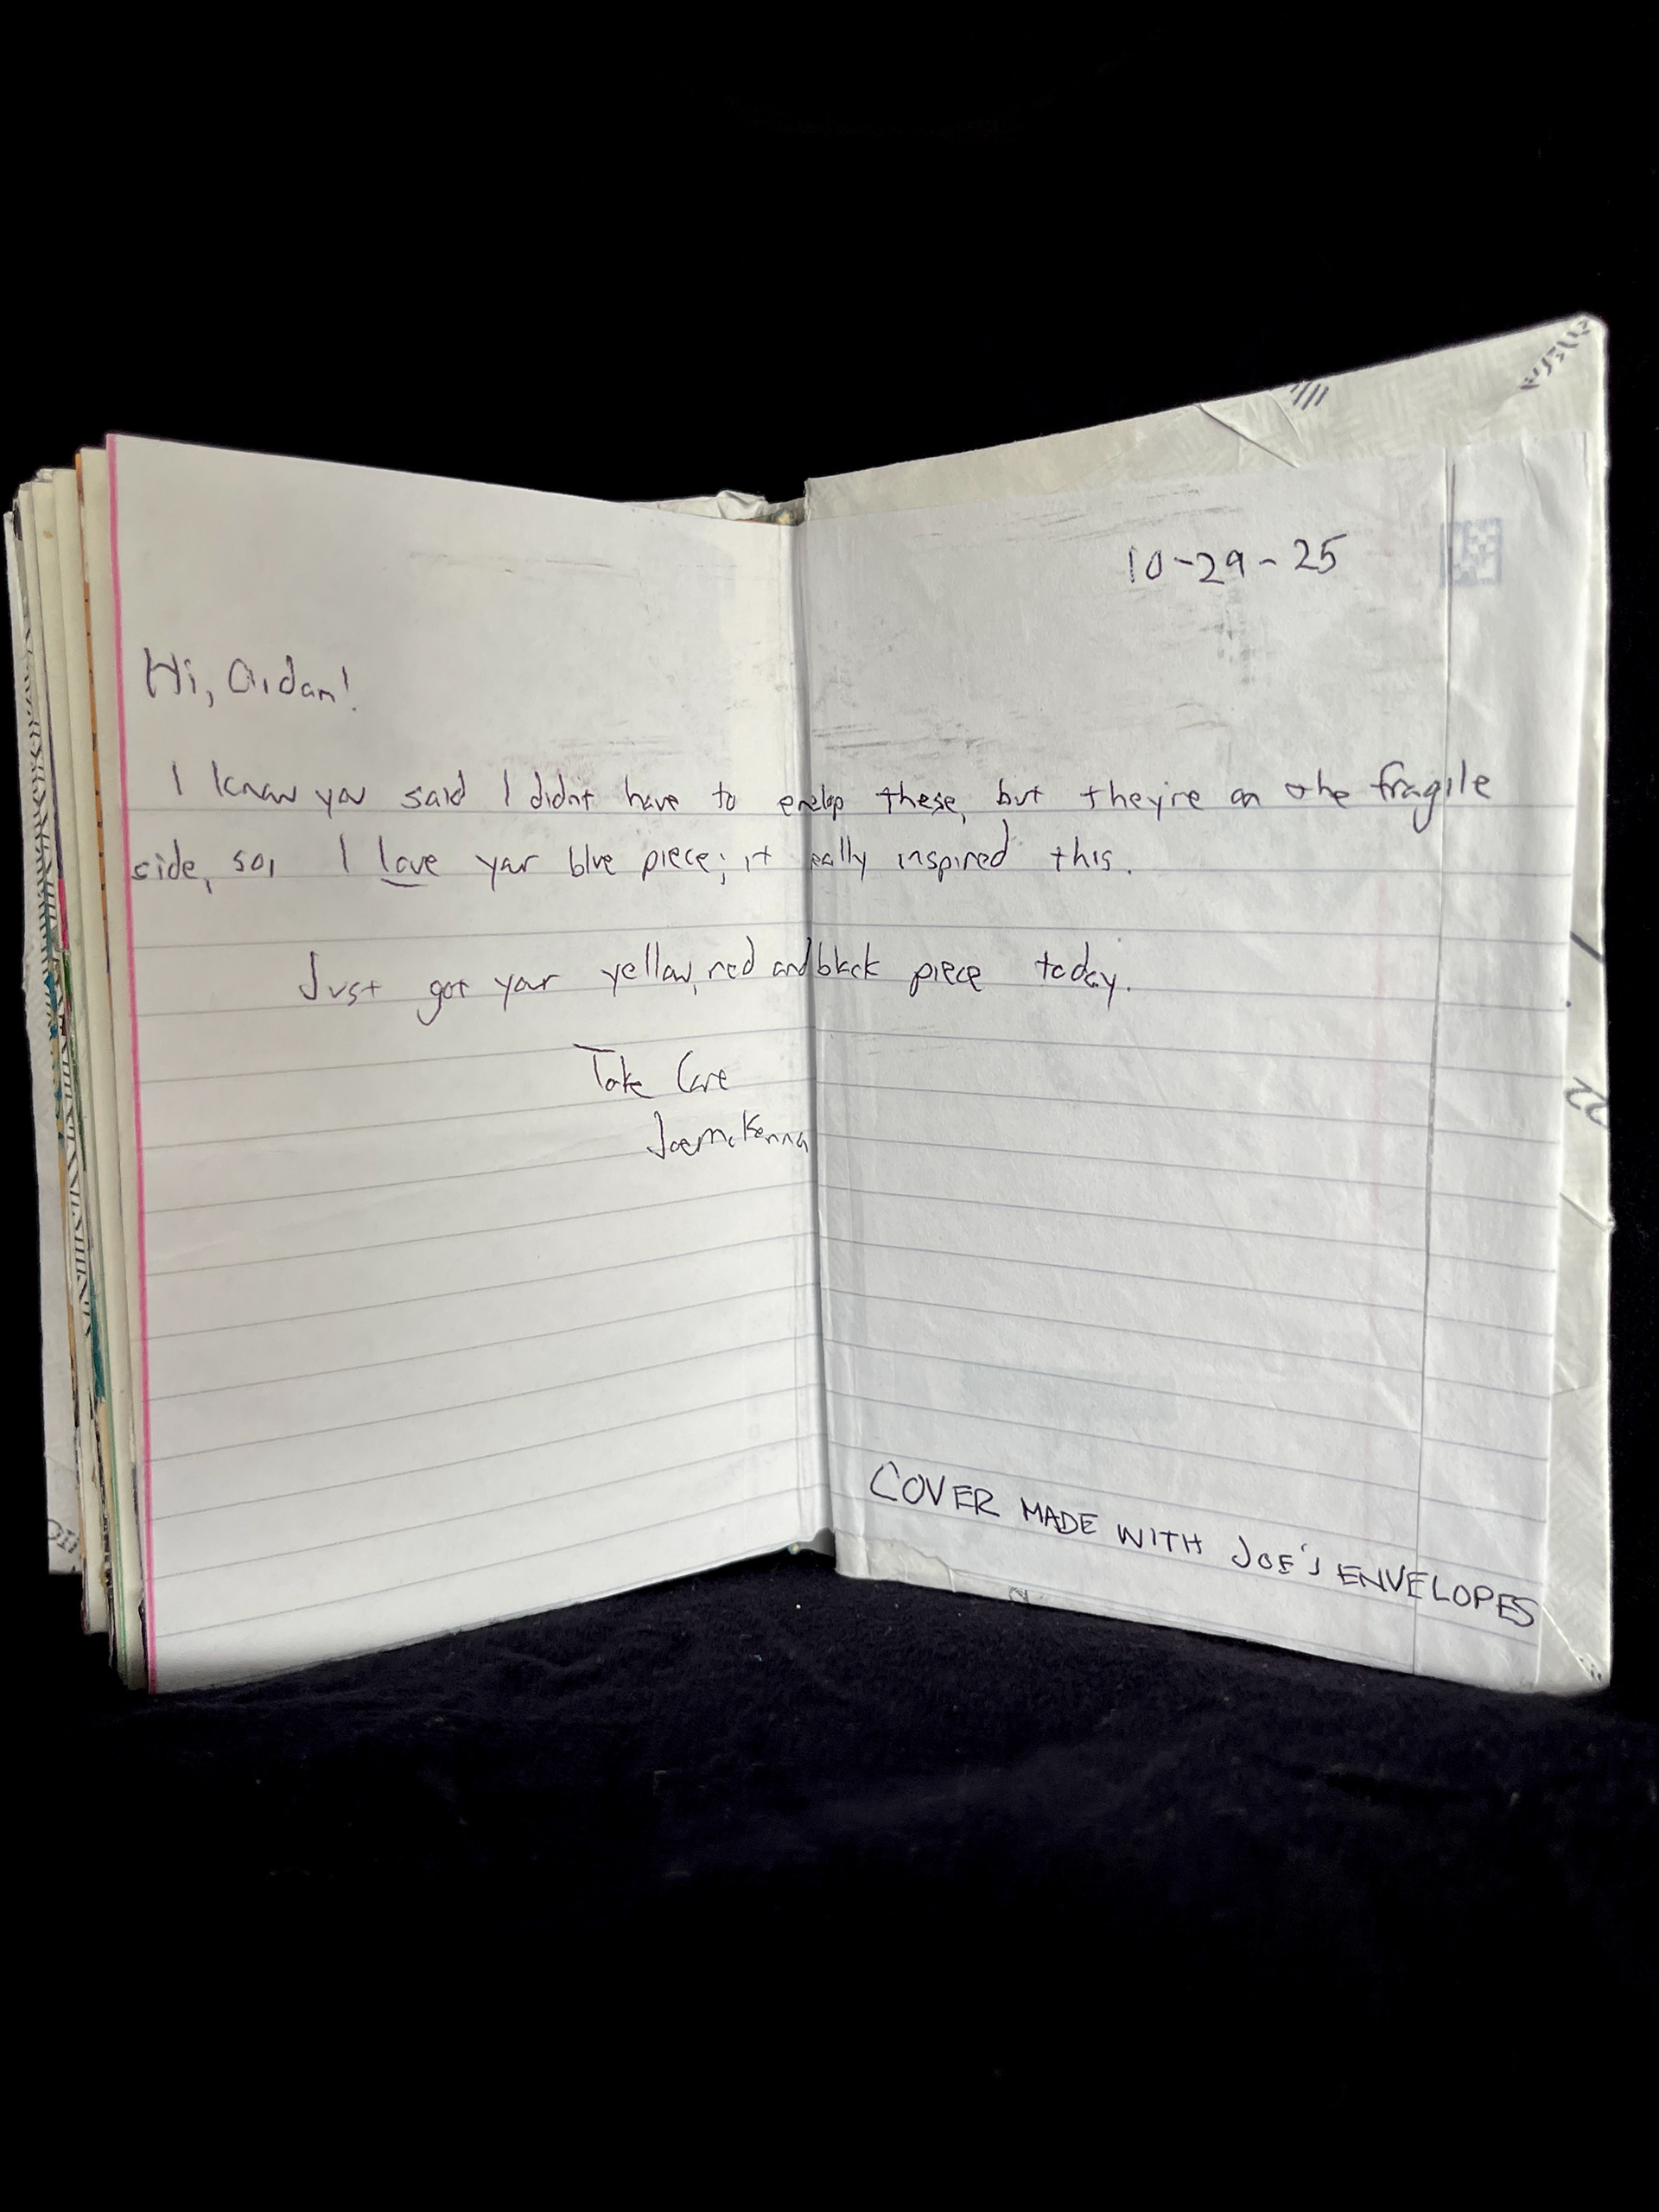 10-29-25
Hi, Aidan!
I know you said I didn't have to envelop these, but they're on the fragile
side, so, I love your blue piece; it really inspired this.
Just got your yellow, red and black piece today.
Take Care
Joe McKenna
COVER MADE WITH JOE'S ENVELOPES